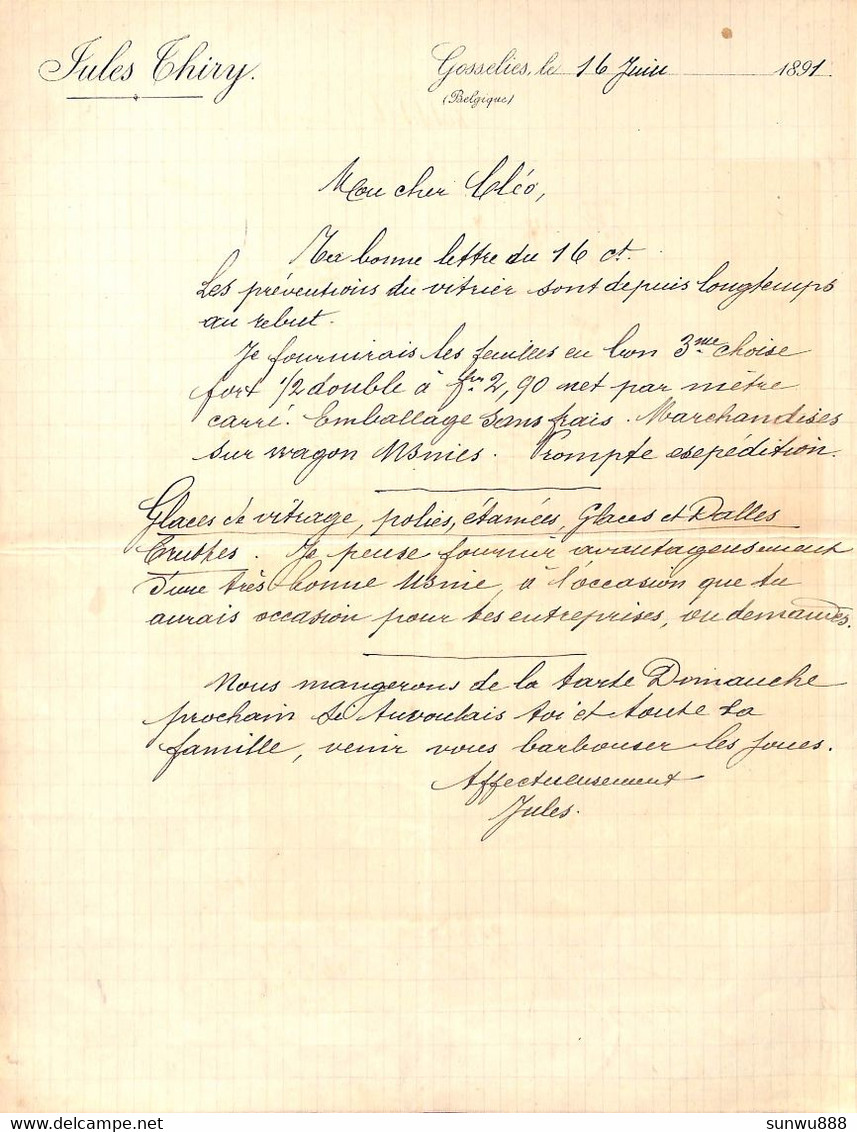 Jules Thiry.
Gosselies, le 16 Juin 1891
(Belgique)
Mon cher Cléo,
Ta bonne lettre du 16 ct.
Les préventions du vitrier sont depuis longtemps
au rebut.
Je fournirais les feuilles en bon 3me choise
fort 1/2 double à frs 2,90 net par mètre
carré. Emballage sans frais. Marchandises
sur wagon Usnies. Prompte esepédition.
Glaces de vitrage, polies, étamées, Glaces et Dalles
brutes. Je pense fournir avantageusement
d'une très bonne Usnie, à l'occasion que tu
aurais occasion pour tes entreprises, ou demandes.
Nous mangerons de la tarte Dimanche
prochain si tu voulais toi et toute ta
famille, venir vous barbouser les joues.
Affectueusement
Jules.
sunwu888